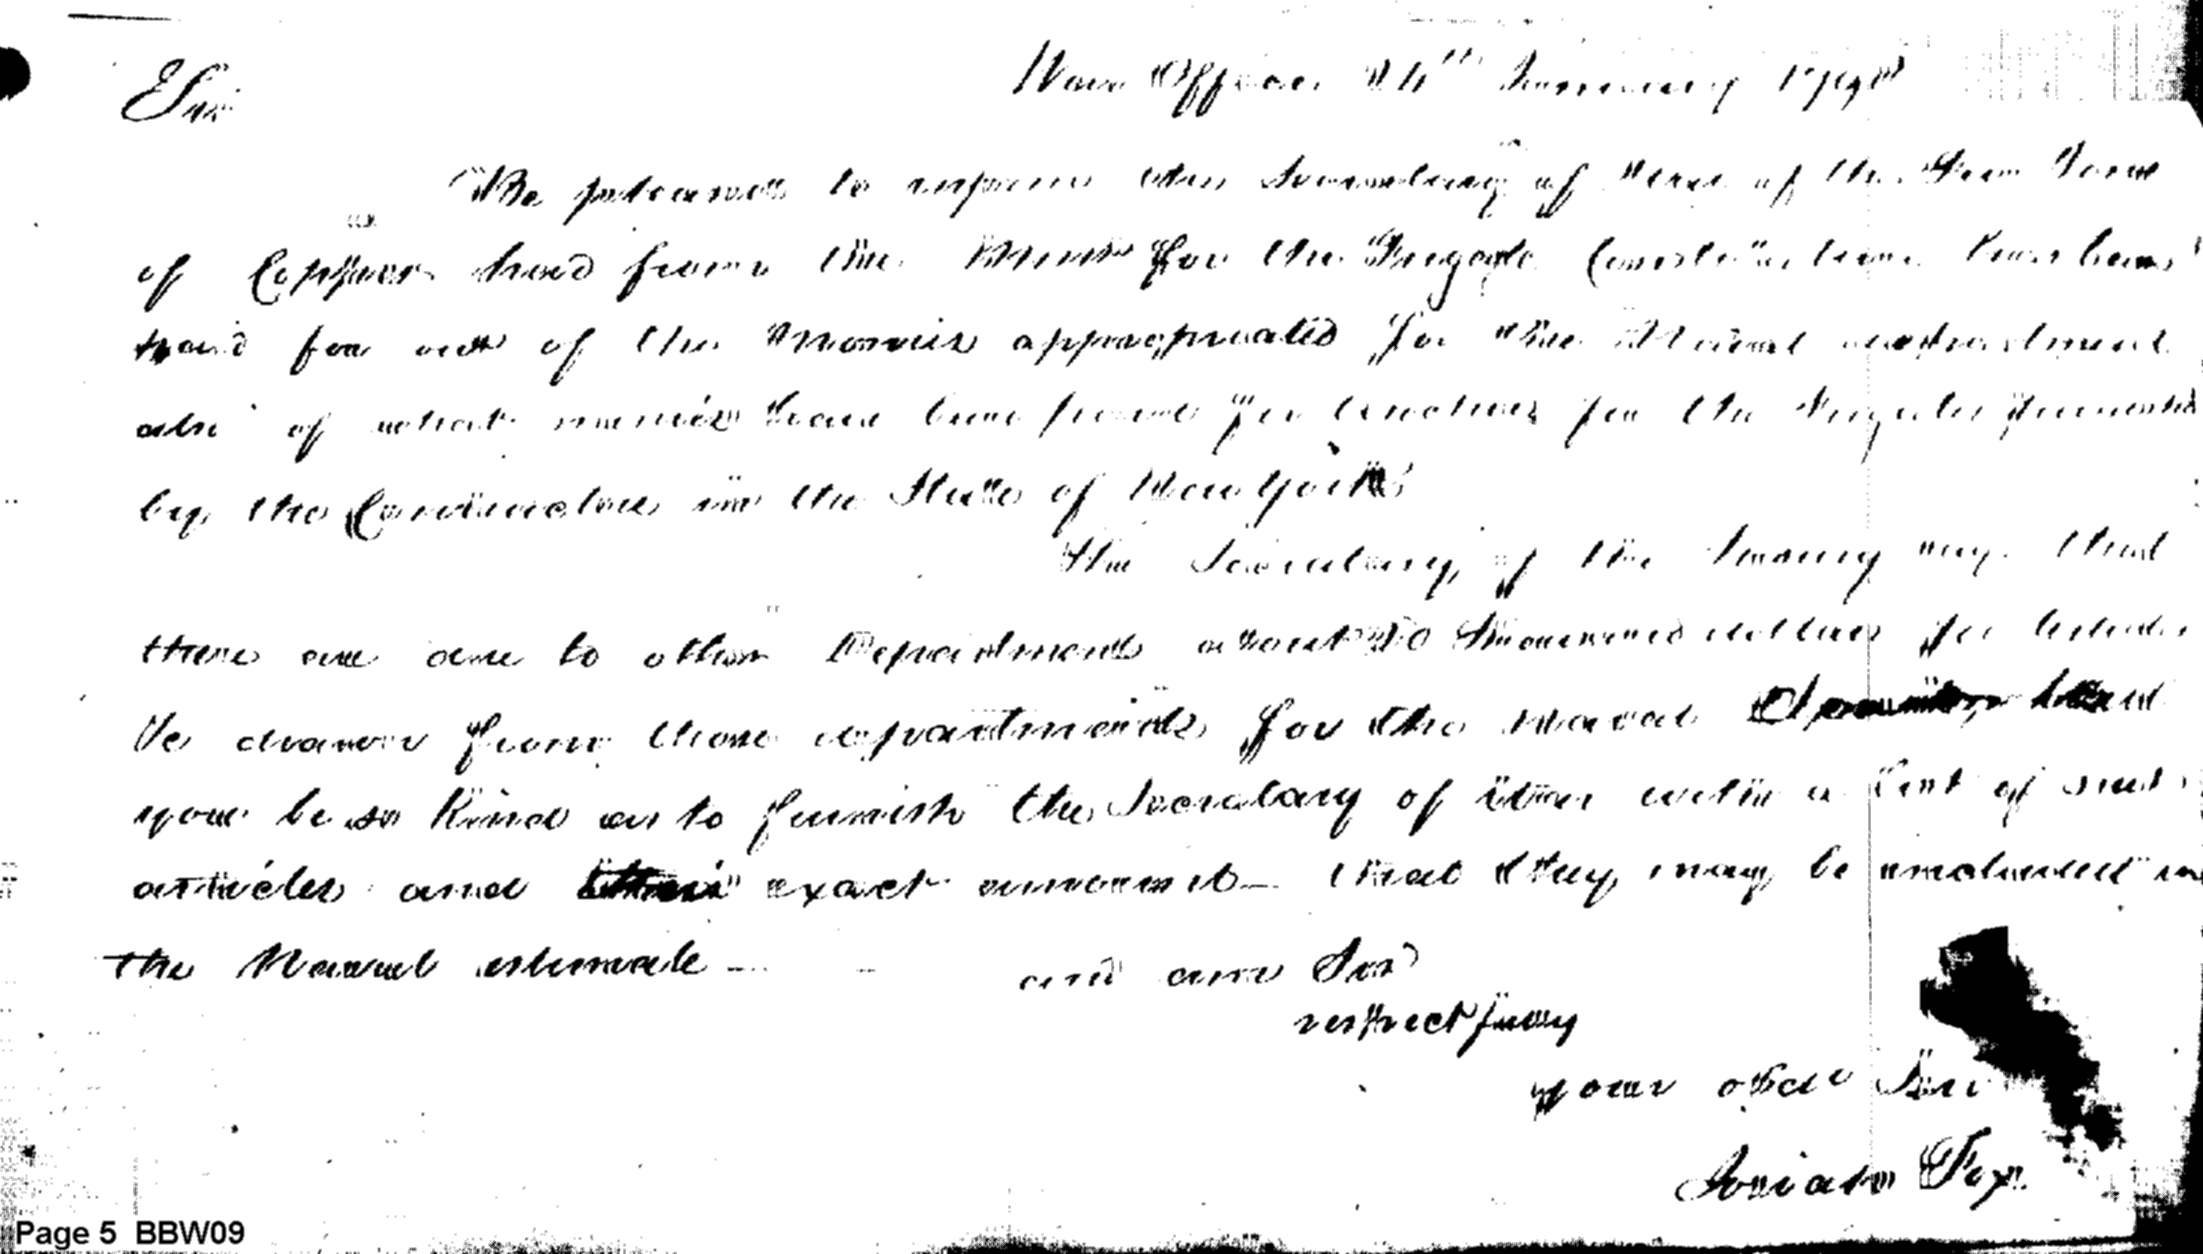 Sir
War Office 24th January 1798
Be pleased to inform the Secretary of War if the Two Tons
of Copper had from the Mint for the Frigate Constitution has been
paid for out of the monies appropriated for the Naval department
also of what monies have been paid for for the Frigates
by the Contractors in the State of New York
The Secretary of the Treasury says that
there are due to other Departments about 20 Thousand dollars for
drawn from those departments for the Naval
you be so kind as to furnish the Secretary of War with a list of such
articles and their exact amount — that they may be included in
the Naval estimate —
and am Sir
respectfully
your obdt Sert
Josiah Fox
Page 5 BBW09